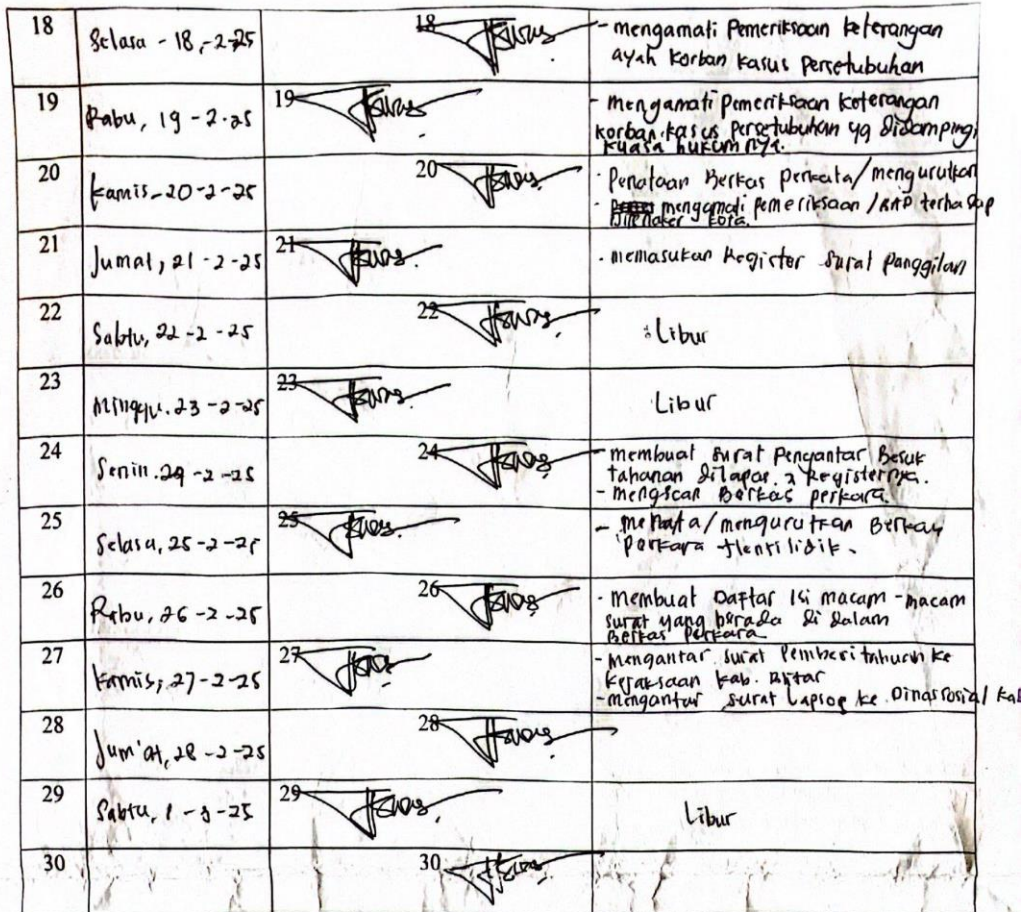 18 Selasa - 18,-2-25 18 - mengamati Pemeriksaan keterangan
ayah korban kasus Persetubuhan
19 Rabu, 19 - 2-25 19 - mengamati pemeriksaan keterangan
korban kasus persetubuhan yg didampingi
kuasa hukumnya.
20 Kamis, 20-2-25 20 - Penataan Berkas perkata/mengurutkan
- mengamati pemeriksaan / terhadap
kota.
21 Jumat, 21 - 2-25 21 - memasukan Register surat panggilan
22 Sabtu, 22 - 2 - 25 22 Libur
23 Minggu. 23 -2-25 23 Libur
24 Senin. 24 - 2 - 25 24 - membuat surat Pengantar Besuk
tahanan dilapas registernya.
- mengscan Berkas perkara
25 Selasa, 25 -2-25 25 - menata/mengurutkan Berkas
perkara
26 Rabu, 26 -2-25 26 - Membuat Daftar Isi macam - macam
surat yang berada di dalam
Berkas Perkara
27 Kamis, 27-2-25 27 - mengantar surat Pemberitahuan ke
Kejaksaan kab. Blitar
- mengantar surat Lapsos ke Dinas Sosial Kab
28 Jum'at, 28 -2-25 28
29 Sabtu, 1 - 3-25 29 Libur
30 30